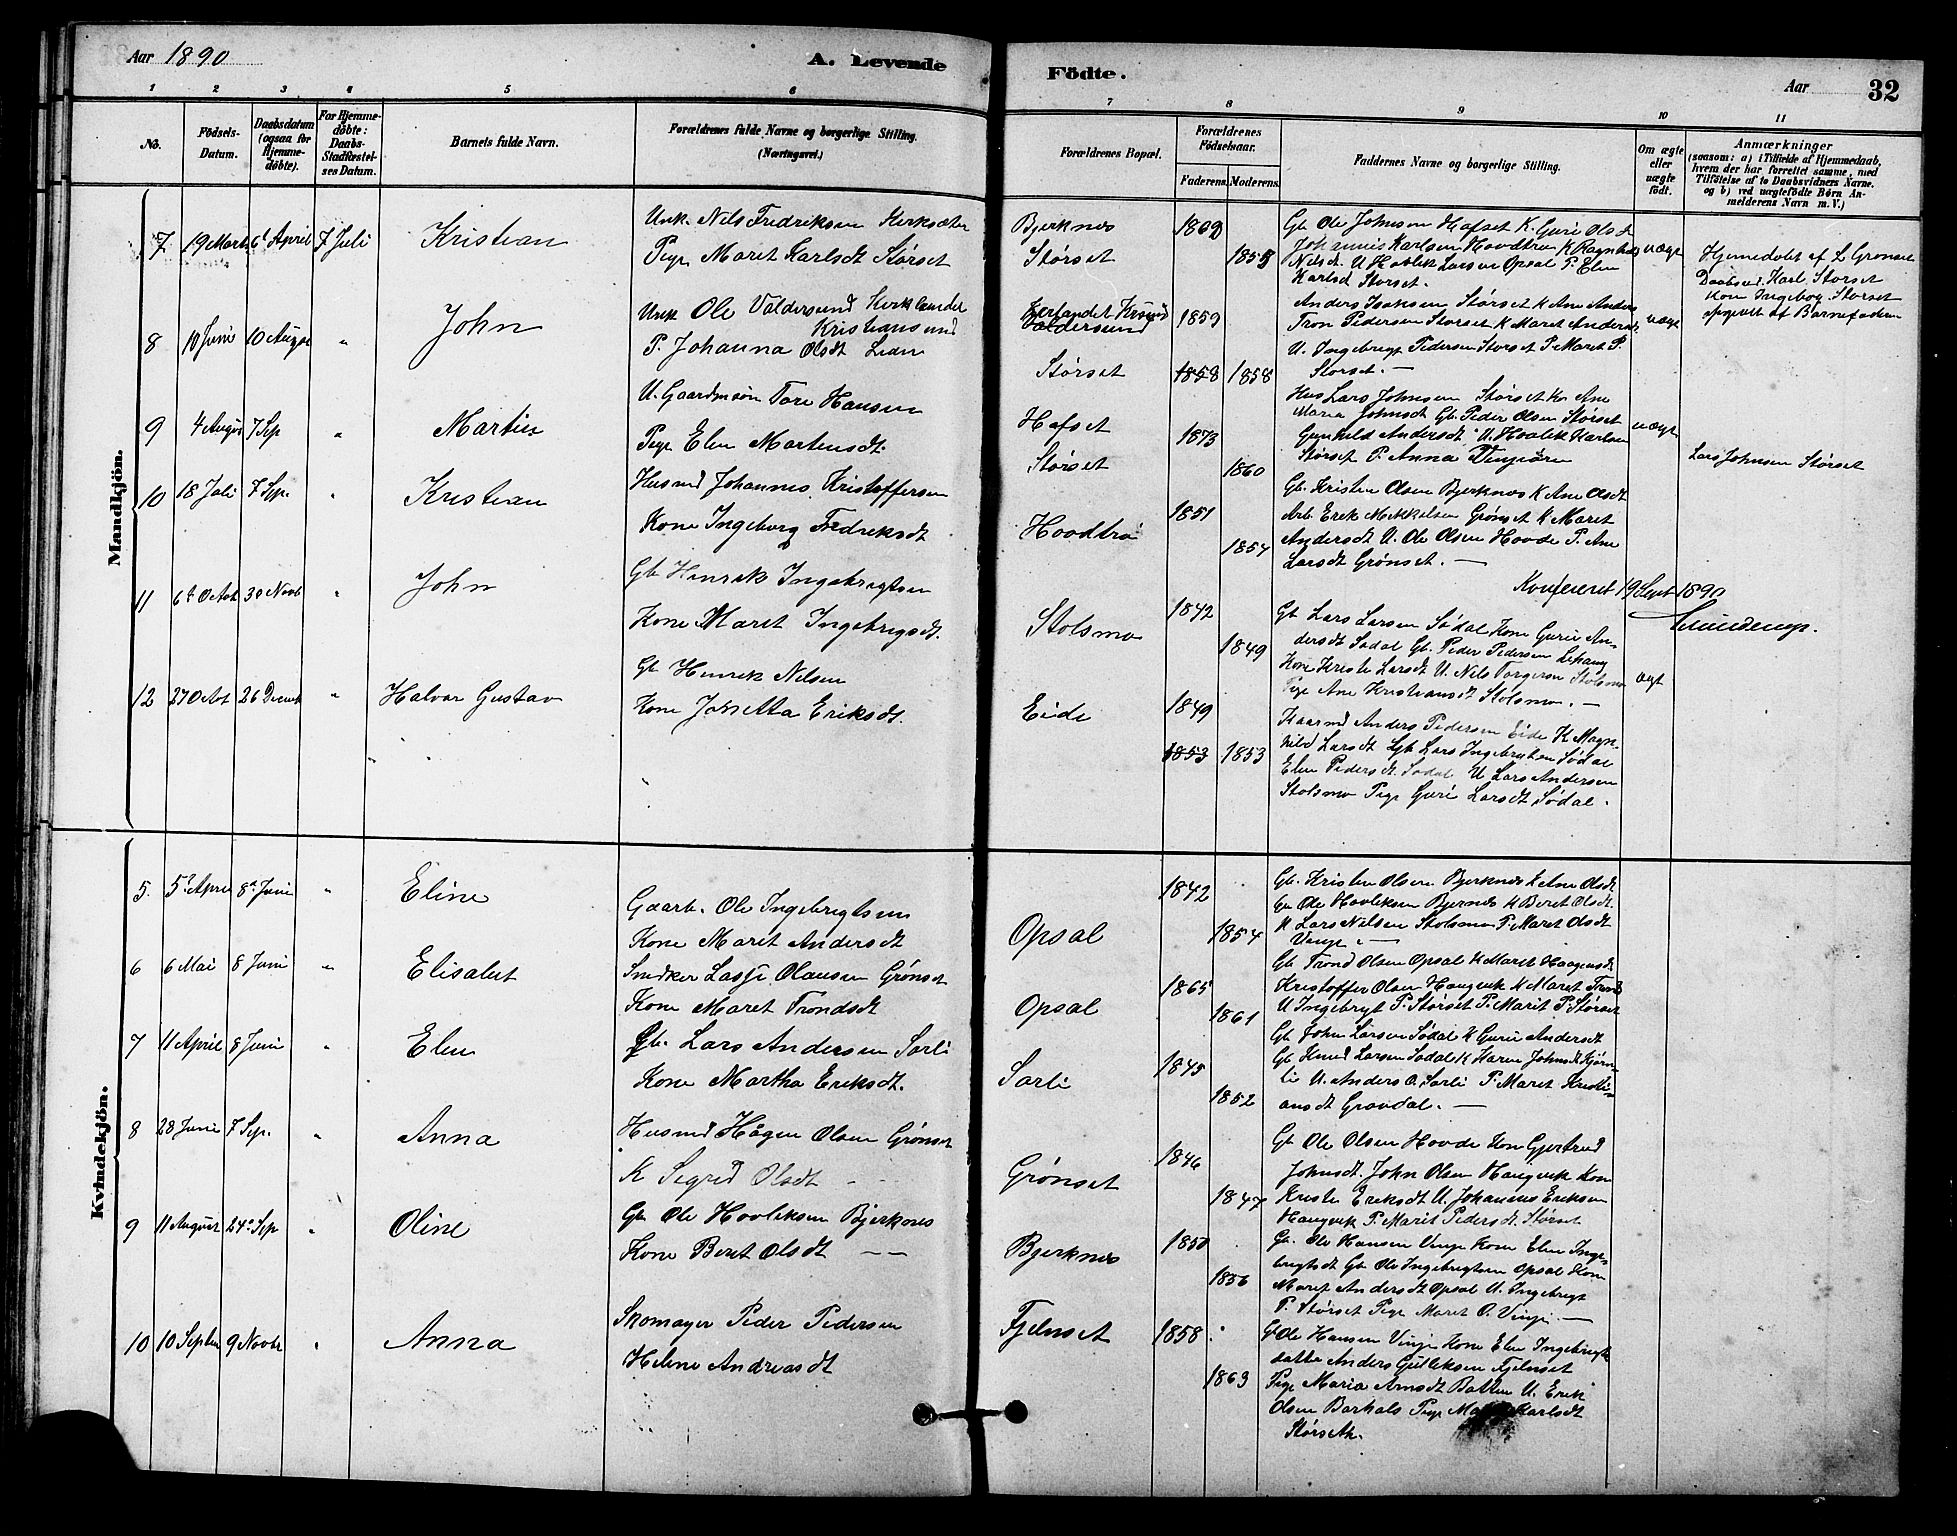 Aar 1890
A. Levende
Födte.
Aar
32
1 2 3 4 5 6 7 8 9 10 11
No.
Födsels-Datum.
Daabsdatum (ogsaa for Hjemmedöbte).
For Hjemmedöbte: Daabs-Stadfæstelses Datum.
Barnets fulde Navn.
Forældrenes fulde Navne og borgerlige Stilling. (Næringsvei.)
Forældrenes Bopæl.
Forældrenes Födselsaar.
Faderens. Moderens.
Faddernes Navne og borgerlige Stilling.
Om ægte eller uægte födt.
Anmærkninger
(saasom: a) i Tilfælde af Hjemmedaab,
hvem der har forrettet samme, med
Tilföielse af to Daabsvidners Navne.
og b) ved uægtefödte Börn, Anmelderens Navn m. V.)
Mandkjön.
7 19 Marts 6t April 7 Juli Kristian
Unk. Nils Fredriksen Kirksæter
Pige Maret Karlsdt Størset
Bjerknes 1862
Størset 1855
Gb Ole Johnsen Hafset K. Guri Olsd
Johannes Karlsen Hovdtrøn K Ragnhild
Nilsd. U Hovlek Larsen Opsal P. Elen
Karlsd Størset.
uægt
Hjemedøbt af L Grønset
Daabsvid. Karl Størset
Kone Ingebog Størset
opgivet af Barnefaderen
8 10 Juni 10 August " John
Unk Ole Valdersund Kirklandet
Kristiansund
P. Johanna Olsdt Lien
Kirlandet Krsund
Valdersund 1859
Størset 1858 1858
Anders Isaksen Størset K Ane Anders
Tron Pedersen Størset K Maret Andersd.
U. Ingebrigt Pedersen Størset P Maret P.
Størset. —
uægt
9 4 August 7 Sep " Martin
U. Gaardmsøn Tore Hansen
Pige Elen Martensdt.
Hafset 1873
Størset 1860
Hus Lars Johnsen Størset Kn Ane
Maria Johnsdt Gb. Peder Olsen Størset
Gunhild Andersdt. U. Hovlek Karlsen
Størset P. Anna Vinjeøren
uægt
Lars Johnsen Størset
10 18 Juli 7 Sep. " Kristian
Husmd Johannes Kristoffersen
Kone Ingeborg Fredriksdt
Hovdtrø 1851
1854
Gb. Kristen Olsen Bjerknes K Ane Olsdt
Arb. Erik Mikkelsen Grønset K Maret
Andersdt U. Ole Olsen Hovde P. Ane
Larsdt Grønset. —
Konfereret 19 Sept 1890
11 6t Octot 30 Novb " John
Gb Henrik Ingebrigtsen
Kone Maret Ingebrigsdt.
Stolsmo 1842
1849
Gb Lars Larsen Sødal Kone Guri An-
dersdt Sødal Gb. Peder Pedersen
Kone Kristi Larsdt U. Nils Torgersen Stolsmo
Pige Ane Kristiansdt Stolsmo. —
ægt
12 27 Octot 26 Decemb " Halvar Gustav
Gb Henrik Nilsen
Kone Jonetta Eriksdt.
Eide 1849
1853 1853
Kaarmd Anders Pedersen Eide K Magn-
hild Larsdt Lgb Lars Ingebrigtsen Sødal
Elen Pedersdt. Sødal U Lars Andersen
Stolsmo Pige Guri Larsdt Sødal.
Kvindekjön.
5. 5t April 8a Juni " Eline
Gaarb. Ole Ingebrigtsen
Kone Maret Andersdt
Opsal 1842
1854
Gb. Kristen Olsen Bjerknes K Ane Olsdt
Gb Ole Hovleksen Bjernes K Beret Olsdt.
U Lars Nilsen Stolsmo P. Maret Olsdt
Vinje. —
6 6 Mai 8 Juni " Elisabet
Snedker Lasse Olausen Grønset
Kone Maret Trondsdt
Opsal 1865
1861
Gb Trond Olsen Opsal K Maret Haagensdt
Kristoffer Olsen Haugvik K Maret Trond
U Ingebrigt P. Størset P. Marit P. Størset
7 11 April 8 Juni " Elen
Gb. Lars Andersen Sarli
Kone Martha Eriksdt.
Sarli 1845
1852
Gb John Larsen Sødal K Guri Andersdt
Gb Knud Larsen Sødal K Karen Johnsdt Kjørn-
lie U. Anders O. Sarli P. Maret Kristi-
ansdt Gravdal. —
8 28 Juni 7 Sep. " Anna
Husmd Hågen Olsen Grønset
K Sigrid Olsdt — —
Grønset 1846
1847
Gb Ole Olsen Hovde Kone Gjertrud
Johnsdt. John Olsen Haugvik Kone
Kristi Eriksdt U. Johannes Eriksen
Haugvik P. Marit Pedersdt. Størset
9 11 August 24o Sep " Oline
Gb Ole Hovleksen Bjerknes
Kone Beret Olsdt — —
Bjerknes 1850
1856
Gb. Ole Hansen Vinje Kone Elen Inge-
brigtsdt Gb Ole Ingebrigtsen Opsal Kone
Maret Andersdt Opsal U. Ingebrigt
P. Størset Pige Maret O. Vinje. —
10 10 Septem 9 Novbr " Anna
Skomager Peder Pedersen
Helene Andreasdt
Fjelnset 1858
1863
Gb Ole Hansen Vinje Kone Elen Ingebrigts
datter Anders Gulleksen Fjelnset
Pige Maria Arnsdt Batten U. Erik
Olsen Barhals Pige Karlsdt
Størseth.